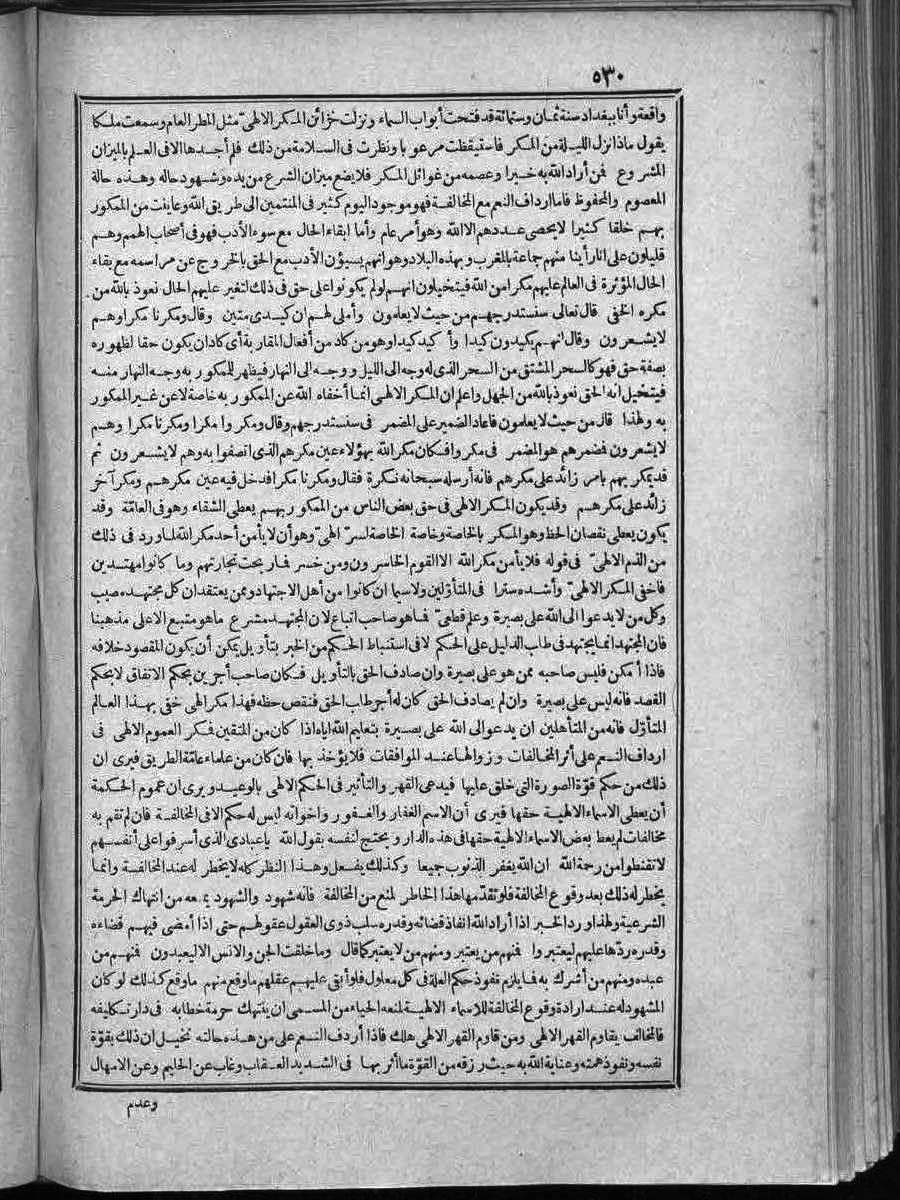 ٥٣٠
واقعة وأنا ببغداد سنة ثمان وستمائة قد فتحت أبواب السماء ونزلت خزائن المكر الالهى مثل المطر العام وسمعت ملكا
يقول ماذا نزل الليلة من المكر فاستيقظت مرعوبا ونظرت فى السلامة من ذلك فلم أجدها الا فى العلم بالميزان
المشروع فمن أراد الله به خيرا وعصمه من غوائل المكر فلا يضع ميزان الشرع من يده وشهود حاله وهذه حالة
المعصوم والمحفوظ فاما ارداف النعم مع المخالفة فهو موجود اليوم كثير فى المنتمين الى طريق الله وعاينت من الممكور
بهم خلقا كثيرا لا يحصى عددهم الا الله وهو أمر عام وأما ابقاء الحال مع سوء الأدب فهو فى أصحاب الهمم وهم
قليلون على انا رأينا منهم جماعة بالمغرب وبهذه البلاد وهو انهم يسيؤن الأدب مع الحق بالخروج عن مراسمه مع بقاء
الحال المؤثرة فى العالم عليهم مكرا من الله فيتخيلون انهم لو لم يكونوا على حق فى ذلك لتغير عليهم الحال نعوذ بالله من
مكره الخفى قال تعالى سنستدرجهم من حيث لا يعلمون وأملى لهم ان كيدى متين وقال ومكرنا مكرا وهم
لا يشعرون وقال انهم يكيدون كيدا وأكيد كيدا وهو من كاد من أفعال المقاربة أى كاد ان يكون حقا لظهوره
بصفة حق فهو كالسحر المشتق من السحر الذى له وجه الى الليل ووجه الى النهار فيظهر للممكور به وجه النهار منه
فيتخيل انه الحق نعوذ بالله من الجهل واعلم ان المكر الالهى انما أخفاه الله عن الممكور به خاصة لا عن غير الممكور
به ولهذا قال من حيث لا يعلمون فاعاد الضمير على المضمر فى سنستدرجهم وقال ومكروا مكرا ومكرنا مكرا وهم
لا يشعرون فضمرهم هو المضمر فى مكروا فكان مكر الله بهؤلاء عين مكرهم الذى اتصفوا به وهم لا يشعرون ثم
قد يمكر بهم بامر زائد على مكرهم فانه أرسله سبحانه نكرة فقال ومكرنا مكرا فدخل فيه عين مكرهم ومكر آخر
زائد على مكرهم وقد يكون المكر الالهى فى حق بعض الناس من الممكور بهم يعطى الشقاء وهو فى العامة وقد
يكون يعطى نقصان الحظ وهو المكر بالخاصة وخاصة الخاصة لسر الهى وهو أن لا يأمن أحد مكر الله لما ورد فى ذلك
من الذم الالهى فى قوله فلا يأمن مكر الله الا القوم الخاسرون ومن خسر فما ربحت تجارتهم وما كانوا مهتدين
فاخفى المكر الالهى وأشده سترا فى المتأولين ولاسيما ان كانوا من أهل الاجتهاد وممن يعتقد ان كل مجتهد مصيب
وكل من لا يدعوا الى الله على بصيرة وعلم قطعى فما هو صاحب اتباع لان المجتهد مشرع ما هو متبع الا على مذهبنا
فان المجتهد انما يجتهد فى طلب الدليل على الحكم لا فى استنباط الحكم من الخبر بتأويل يمكن أن يكون المقصود خلافه
فاذا أمكن فليس صاحبه ممن هو على بصيرة وان صادف الحق بالتأويل فكان صاحب أجرين بحكم الاتفاق لا بحكم
القصد فانه ليس على بصيرة وان لم يصادف الحق كان له أجر طلب الحق فنقص حظه فهذا مكر الهى خفى بهذا العالم
المتأول فانه من المتأهلين ان يدعو الى الله على بصيرة بتعليم الله اياه اذا كان من المتقين فمكر العموم الالهى فى
ارداف النعم على أثر المخالفات وزوالها عند الموافقات فلا يؤخذ بها فان كان من علماء عامة الطريق فيرى ان
ذلك من حكم قوة الصورة التى خلق عليها فيدعى القهر والتأثير فى الحكم الالهى بالوعيد ويرى ان عموم الحكمة
أن يعطى الاسماء الالهية حقها فيرى أن الاسم الغفار والغفور واخواته ليس له حكم الا فى المخالفة فان لم تقم به
مخالفات لم يعط بعض الاسماء الالهية حقها فى هذه الدار ويحتج لنفسه بقول الله يا عبادى الذى أسرفوا على أنفسهم
لا تقنطوا من رحمة الله ان الله يغفر الذنوب جميعا وكذلك يفعل وهذا النظر كله لا يخطر له عند المخالفة وانما
يخطر له ذلك بعد وقوع المخالفة فلو تقدمها هذا الخاطر لمنع من المخالفة فانه شهود والشهود يمنعه من انتهاك الحرمة
الشرعية ولهذا ورد الخبر اذا أراد الله انفاذ قضائه وقدره سلب ذوى العقول عقولهم حتى اذا أمضى فيهم قضاءه
وقدره ردها عليهم ليعتبروا فمنهم من يعتبر ومنهم من لا يعتبر كما قال وما خلقت الجن والانس الا ليعبدون فمنهم من
عبده ومنهم من أشرك به فما يلزم نفوذ حكم العلة فى كل معلول فلو أبقى عليهم عقلهم ما وقع منهم ما وقع كذلك لو كان
المشهود له عند ارادة وقوع المخالفة للاسماء الالهية لمنعه الحياء من المسمى ان ينتهك حرمة خطابه فى دار تكليفه
فالمخالف يقاوم القهر الالهى ومن قاوم القهر الالهى هلك فاذا أردف النعم على من هذه حالته تخيل ان ذلك بقوة
نفسه ونفوذ همته وعناية الله به حيث رزقه من القوة ما أثر بها فى الشديد العقاب وغاب عن الحليم وعن الامهال
وعدم